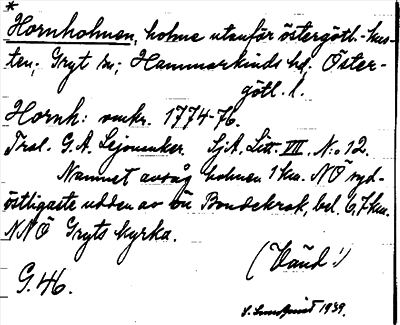 *
Hornholmen, holme utanför östergötl.-kus-
ten; Gryt sn; Hammarkinds hd. Öster-
götl. l.
Hornh: omkr. 1774-76.
Tral. G. A. Lejonanker SjA, Litt. VII. N:o 12.
Namnet avsåg holmen 1 km. NÖ syd-
östligaste udden av ön Bondekrok, bel. 6,7 km.
NNÖ Gryts kyrka.
(Vänd!)
G. 46.
S. Lundquist 1939.